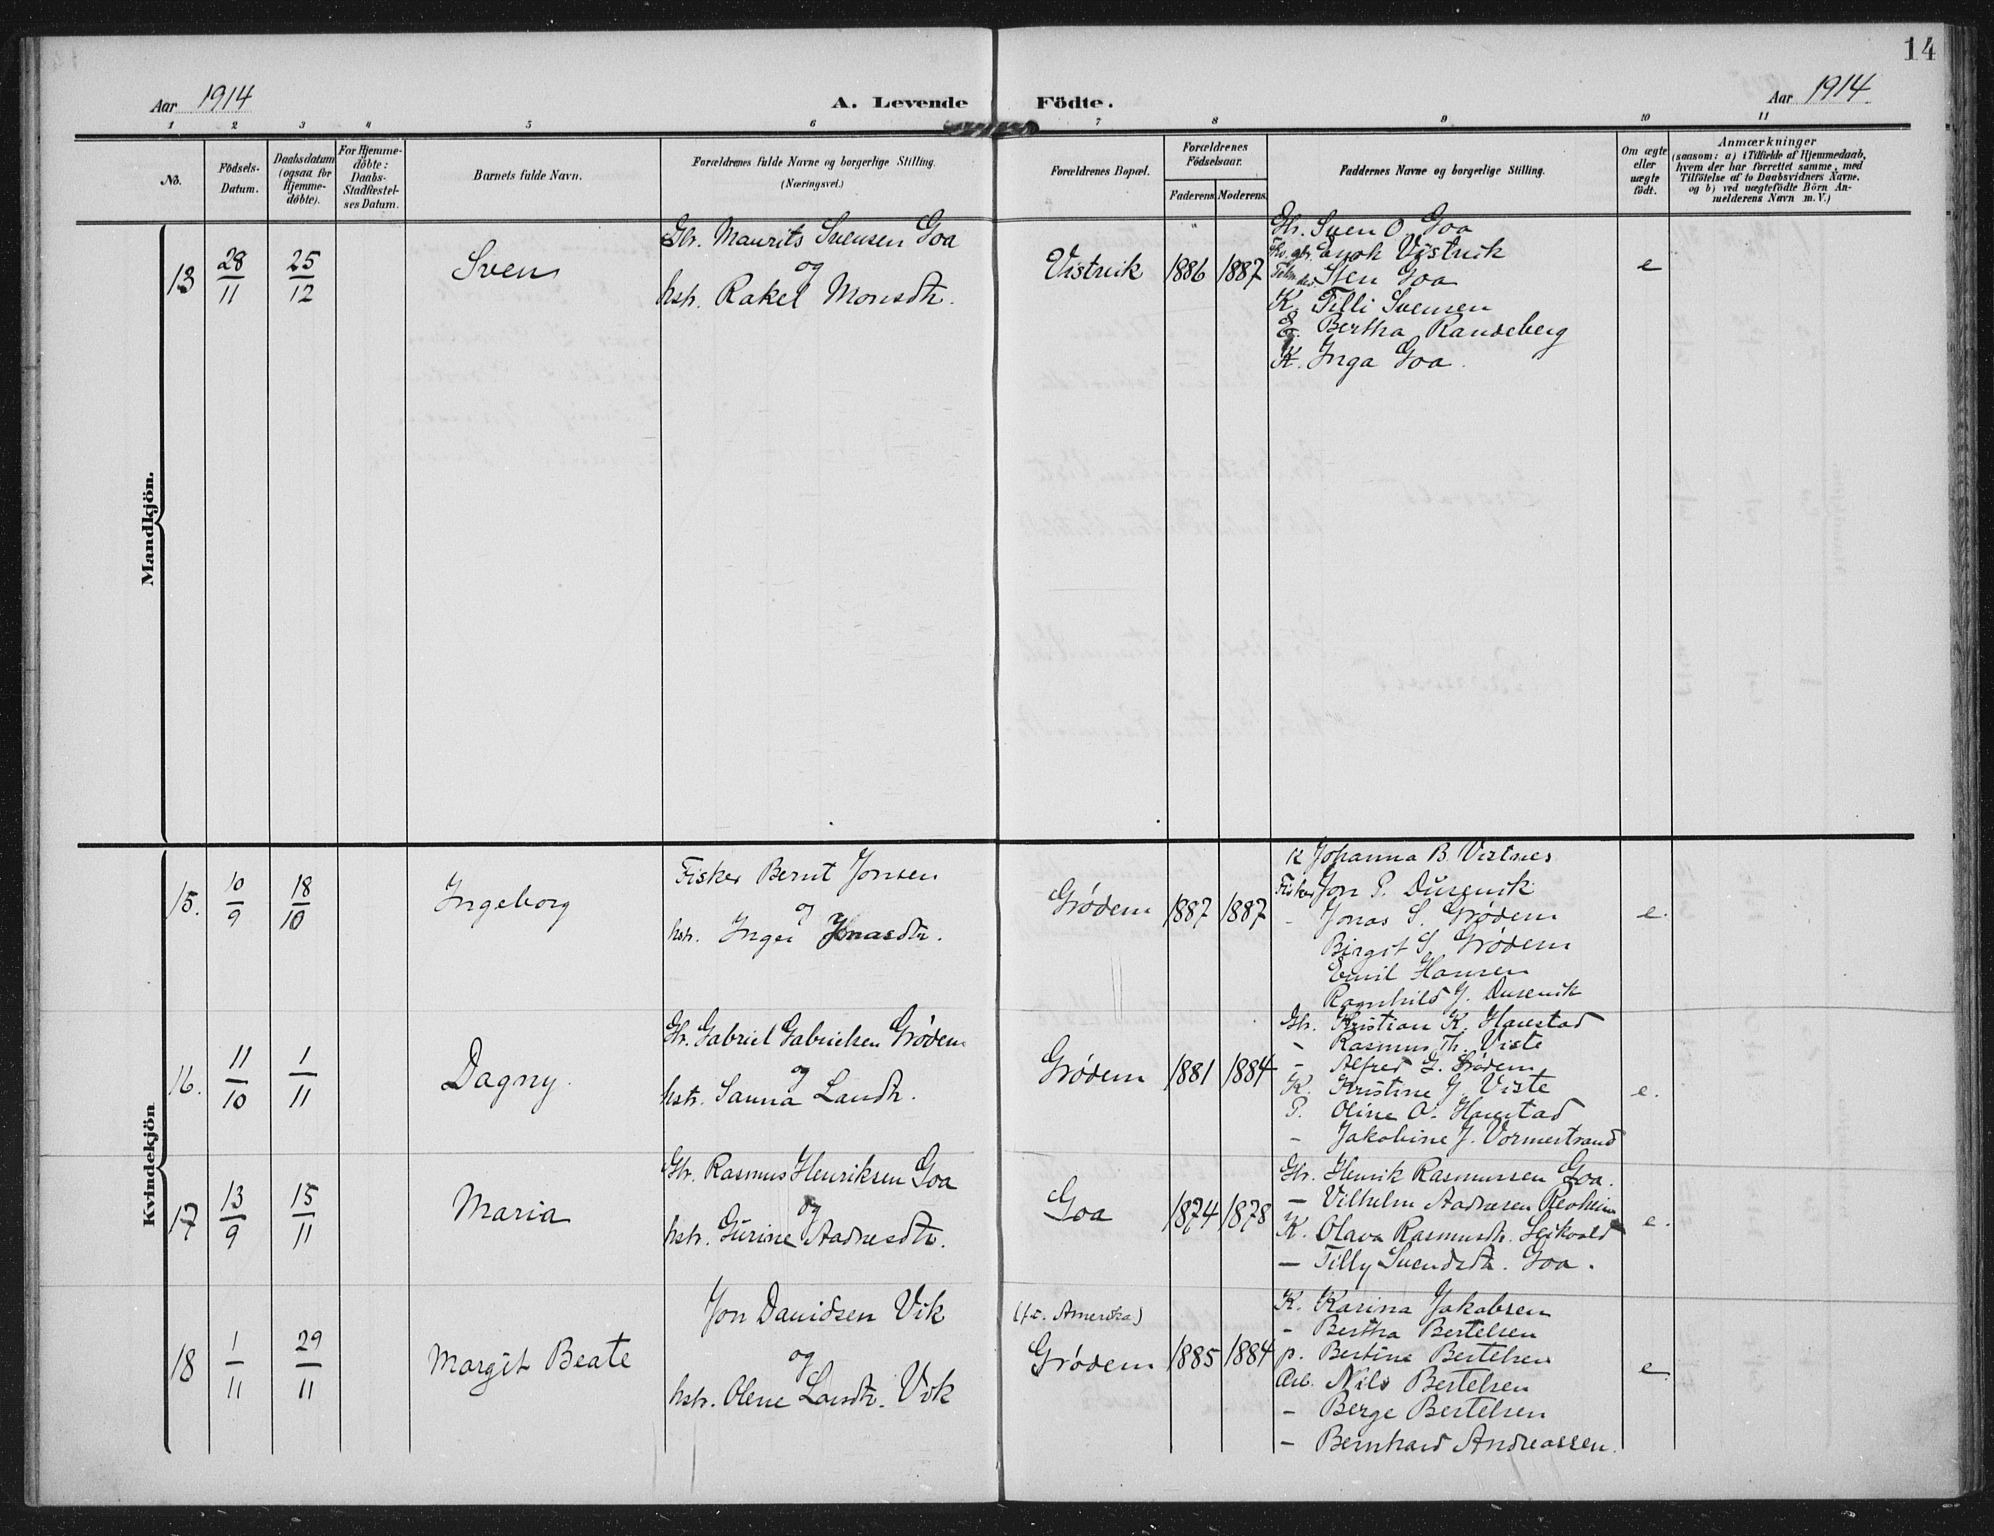 14
Aar 1914
A. Levende Födte.
Aar 1914
1 2 3 4 5 6 7 8 9 10 11
No.
Födsels-
Datum.
Daabsdatum
(ogsaa for
Hjemme-
döbte).
For Hjemme-
döbte:
Daabs-
Stadfæstel-
ses Datum.
Barnets fulde Navn.
Forældrenes fulde Navne og borgerlige Stilling.
(Næringsvei.)
Forældrenes Bopæl.
Forældrenes
Födselsaar.
Faderens Moderens
Faddernes Navne og borgerlige Stilling.
Om ægte
eller
uægte
födt.
Anmærkninger
(saasom: a) i Tilfælde af Hjemmedaab,
hvem der har forrettet samme, med
Tilföielse af to Daabsvidners Navne,
og b) ved uægtefödte Börn An-
melderens Navn m. V.)
Mandkjön.
13
28/11
25/12
Sven
Gbr. Maurits Svensen Goa
og
hstr. Rakel Monsdtr.
Vistvik
1886 1887
Gbr. Sven O. Goa
Vistvik
Sten Goa
K. Tilli Svensen
E. Bertha Randeberg
K. Inga Goa.
e
Kvindekjön
15.
10/9
18/10
Ingeborg
Fisker Bernt Jonsen
og
hstr. Inger Jonasdtr.
Grödem
1887 1887
K Johanna B. Vistnes
Fisker Jon P. Dusevik
- Jonas S. Grödem
Birgit S. Grödem
Emil Hansen
Ragnhild J. Dusevik
e.
16.
11/10
1/11
Dagny.
Gbr. Gabriel Gabrielsen Grödem
og
hstr. Sanna Larsdtr.
Grödem
1881 1884
Gbr. Kristian K. Harestad
- Rasmus Th. Viste
- Alfred G. Grödem
K. Kristine J. Viste
P. Oline O. Harestad
- Jakobine J. Vormestrand
e.
17
13/9
15/11
Maria
Gbr. Rasmus Henriksen Goa
og
hstr. Gurine Aadnesdtr.
Goa
1874 1878
Gbr. Henrik Rasmussen Goa.
- Vilhelm Aadnesen Revheim
K. Olava Rasmusdtr.
- Tilly Svendsdtr. Goa.
e.
18
1/11
29/11
Margit Beate
Jon Davidsen Vik
og
hstr. Olene Larsdtr. Vik
(f.t. Amerika)
Grödem
1885 1884
K. Karina Jakobsen
- Bertha Bertelsen
p. Bertine Bertelsen
Arb. Nils Bertelsen
- Berge Bertelsen
- Bernhard Andreassen.
e